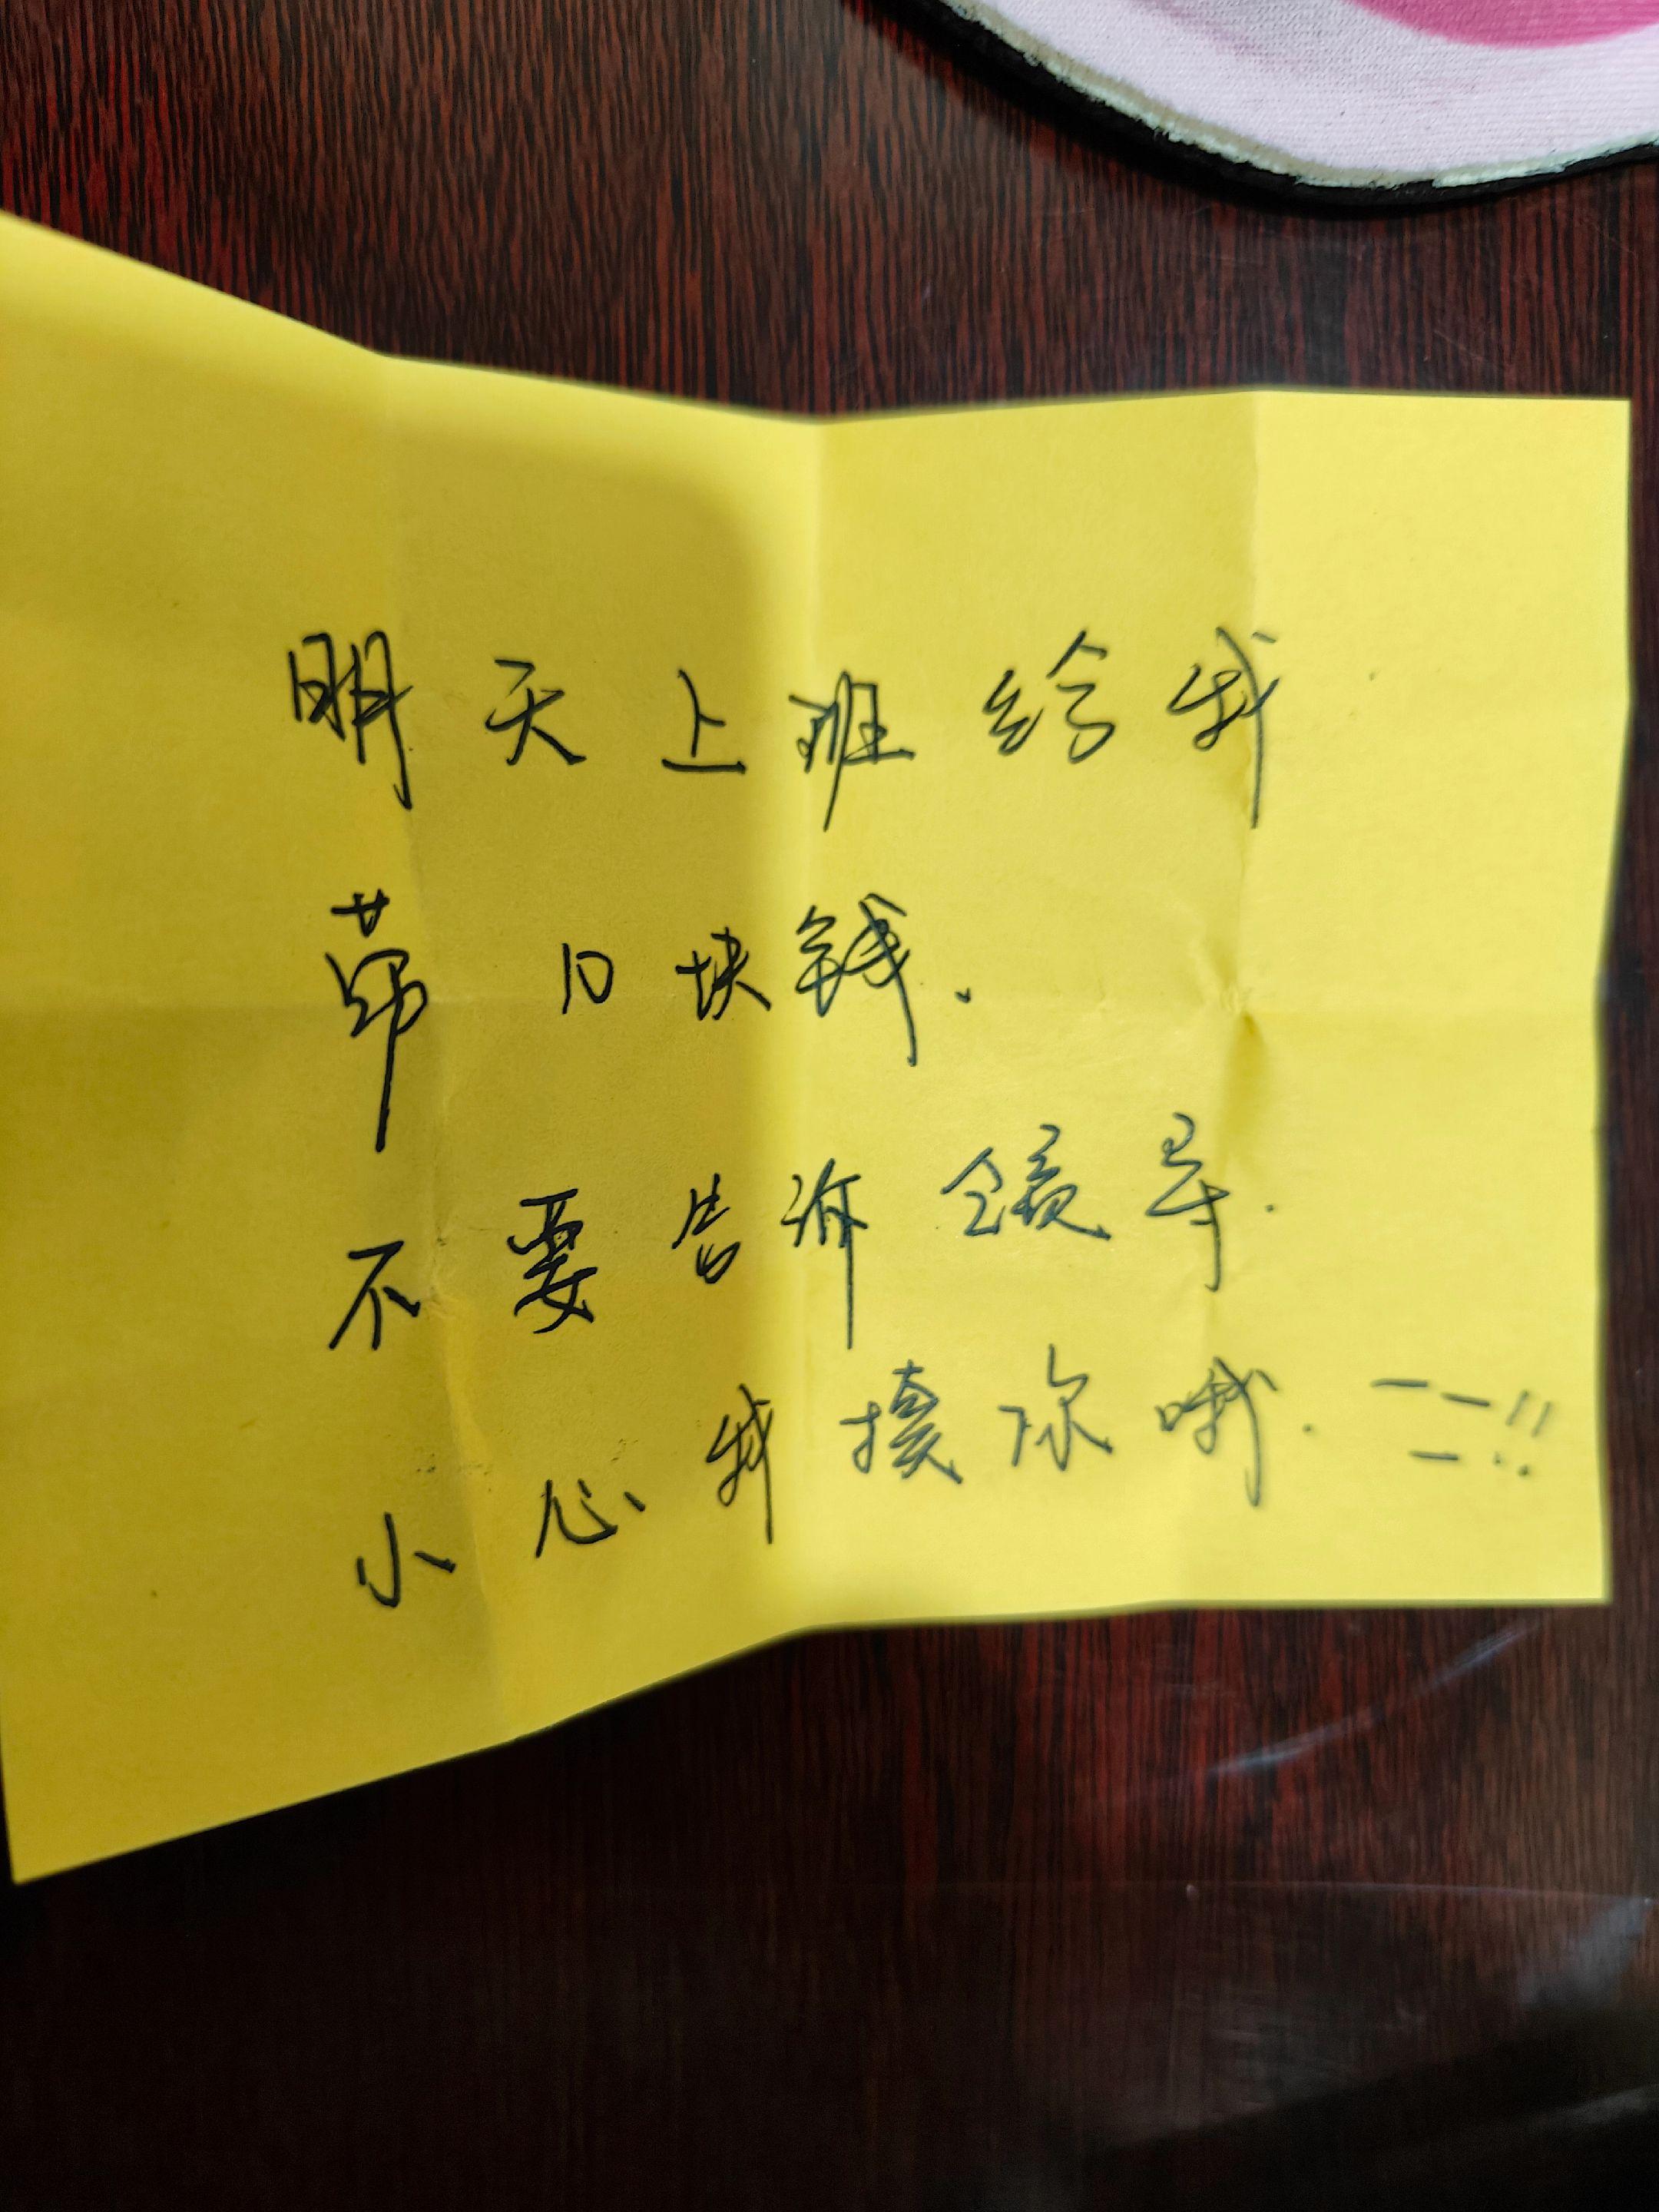 明天上班给我
带 10块钱.
不要告诉领导.
小心我揍你哦. ——!!